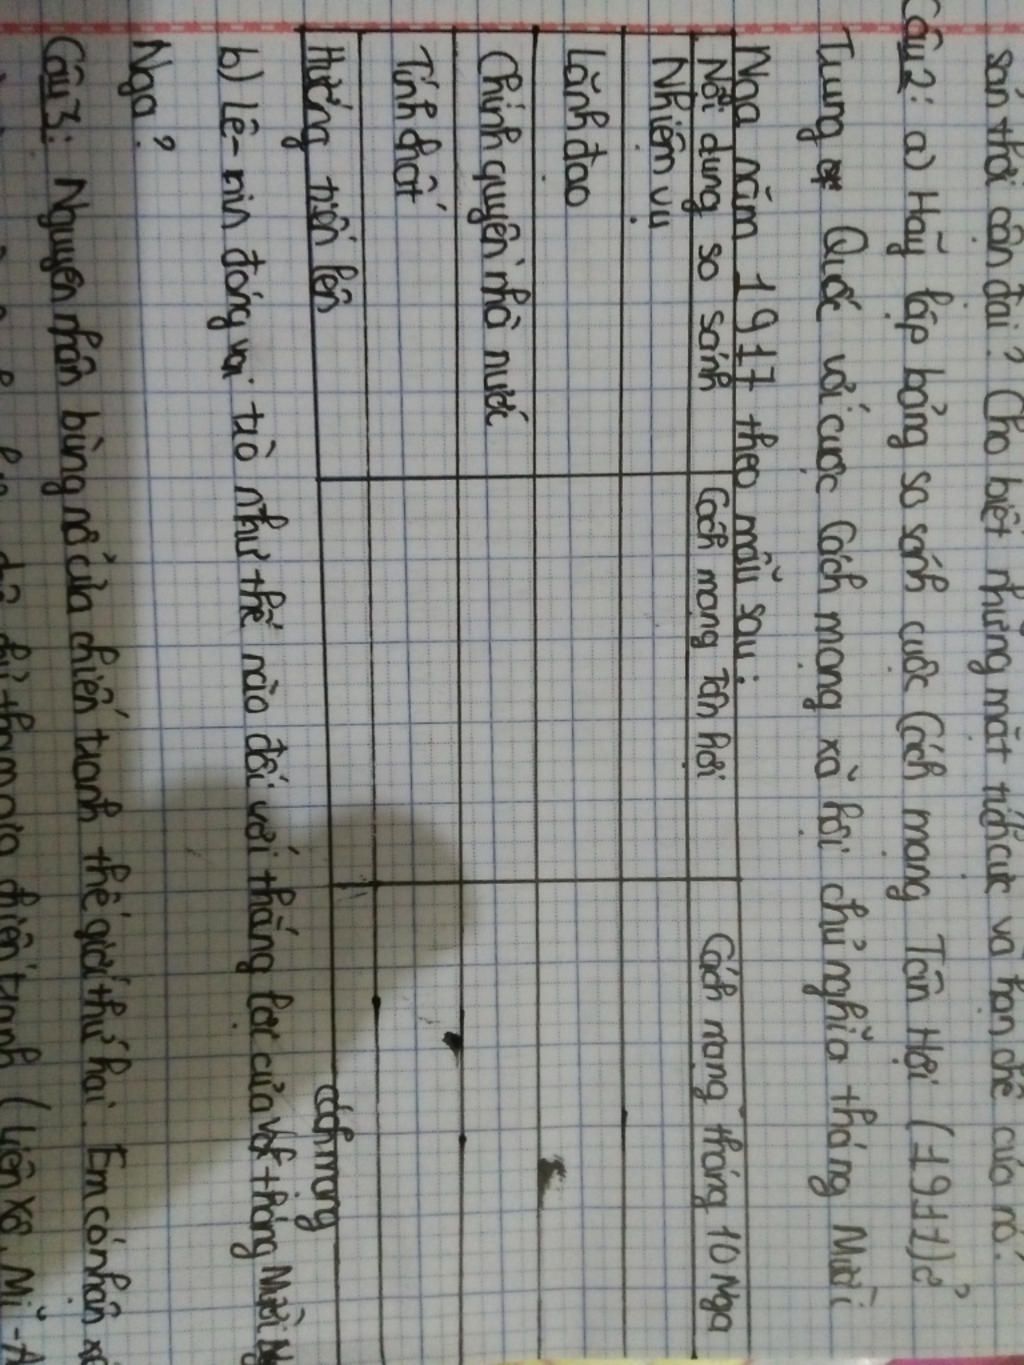 sản thời cận đại? Cho biết những mặt tích cực và hạn chế của nó.
Câu 2: a) Hãy lập bảng so sánh cuộc Cách mạng Tân Hợi (1911) ở
Trung Quốc với cuộc Cách mạng xã hội chủ nghĩa tháng Mười
Nga năm 1917 theo mẫu sau:
Nội dung so sánh Cách mạng Tân hợi Cách mạng tháng 10 Nga
Nhiệm vụ
Lãnh đạo
Chính quyền nhà nước
Tính chất
Hướng tiến lên
cách mạng
b) Lê-nin đóng vai trò như thế nào đối với thắng lợi của tháng Mười
Nga?
Câu 3: Nguyên nhân bùng nổ của chiến tranh thế giới thứ hai. Em có nhận
chiến tranh (Liên Xô, Mĩ-